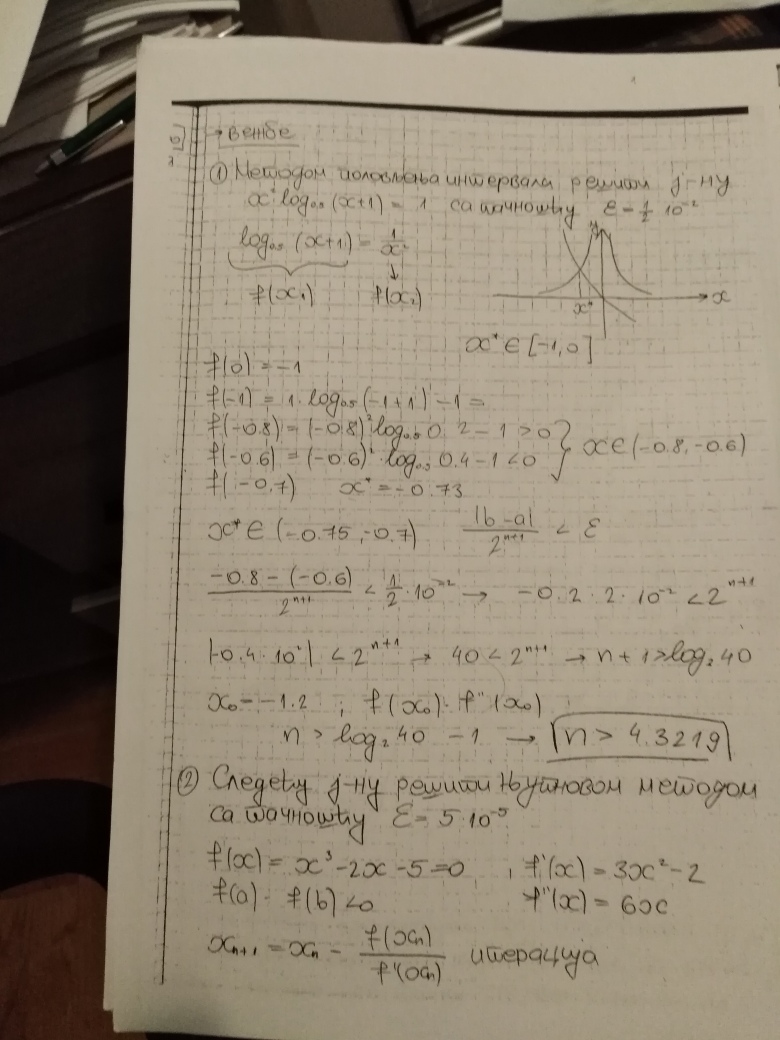 → вежбе
① Методом половљења интервала решити ј-ну
x² log₀.₅ (x+1) = 1 са тачношћу ε = 1/2 · 10⁻²
log₀.₅ (x+1) = 1/x²
f(x₁) f(x₂)
y
x
x*
x* ∈ [-1, 0]
f(0) = -1
f(-1) = 1 · log₀.₅ (-1+1) - 1 =
f(-0.8) = (-0.8)² log₀.₅ 0.2 - 1 > 0
f(-0.6) = (-0.6)² · log₀.₅ 0.4 - 1 < 0 } x ∈ (-0.8, -0.6)
f(-0.7) x* = -0.73
x* ∈ (-0.75, -0.7) |b-a|/2ⁿ⁺¹ < ε
-0.8 - (-0.6)/2ⁿ⁺¹ < 1/2 · 10⁻² → -0.2 · 2 · 10⁻² < 2ⁿ⁺¹
|-0.4 · 10²| < 2ⁿ⁺¹ → 40 < 2ⁿ⁺¹ → n + 1 > log₂ 40
x₀ = -1.2 ; f(x₀) · f''(x₀)
n > log₂ 40 - 1 → n > 4.3219
② Следећу ј-ну решити Њутновом методом
са тачношћу ε = 5 · 10⁻⁵
f(x) = x³ - 2x - 5 = 0 , f'(x) = 3x² - 2
f(a) · f(b) < 0 f''(x) = 6x
xₙ₊₁ = xₙ - f(xₙ)/f'(xₙ) итерација